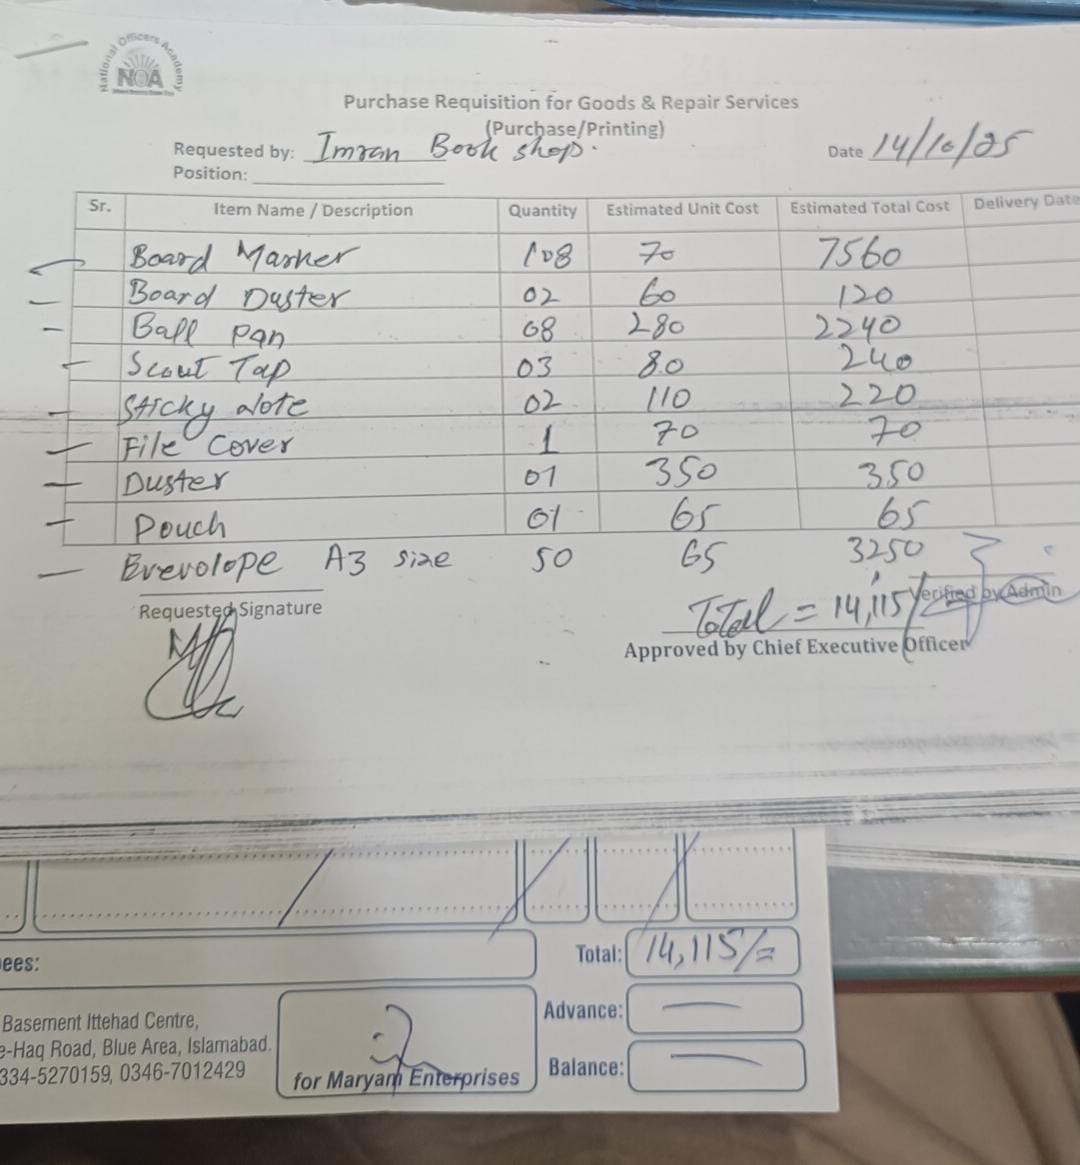 National Officers Academy
NOA
Purchase Requisition for Goods & Repair Services
(Purchase/Printing)
Requested by: Imran Book shop.
Date 14/10/25
Position:
Sr. Item Name / Description Quantity Estimated Unit Cost Estimated Total Cost Delivery Date
Board Marker 108 70 7560
Board Duster 02 60 120
Ball Pan 08 280 2240
Scout Tap 03 80 240
Sticky Note 02 110 220
File Cover 1 70 70
Duster 01 350 350
Pouch 01 65 65
Envolope A3 size 50 65 3250
Requested Signature
Total = 14,115/
Verified by Admin
Approved by Chief Executive Officer
ees:
Total: 14,115/=
Advance: —
Balance: —
Basement Ittehad Centre,
e-Haq Road, Blue Area, Islamabad.
334-5270159, 0346-7012429
for Maryam Enterprises